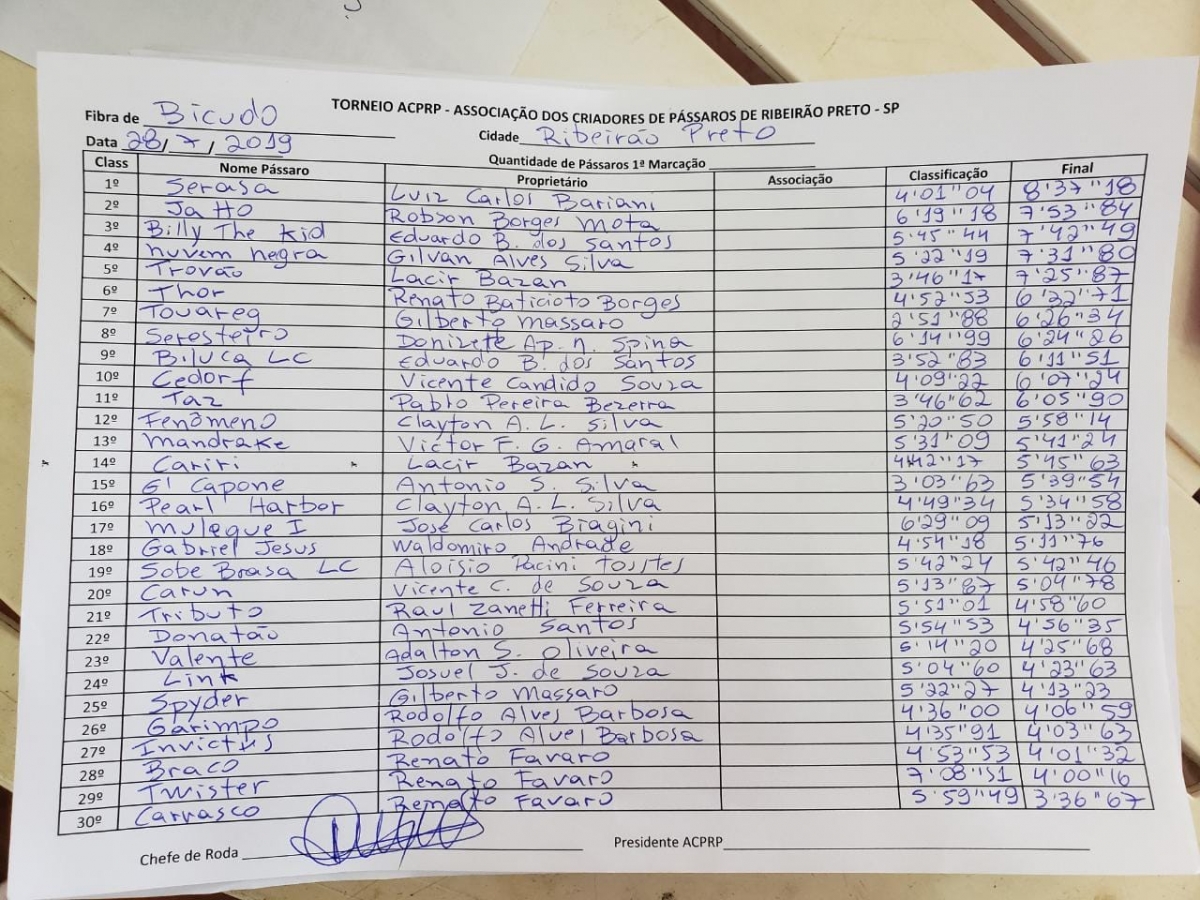 TORNEIO ACPRP - ASSOCIAÇÃO DOS CRIADORES DE PÁSSAROS DE RIBEIRÃO PRETO - SP
Fibra de Bicudo Cidade Ribeirão Preto
Data 28/7/2019 Quantidade de Pássaros 1ª Marcação
Class Nome Pássaro Proprietário Associação Classificação Final
1º Serasa Luiz Carlos Bariani 4'01"04 8'37"18
2º Jatto Robson Borges Mota 6'19"18 7'53"84
3º Billy The Kid Eduardo B. dos Santos 5'45"44 7'42"49
4º nuvem negra Gilvan Alves Silva 5'22"19 7'31"80
5º Trovão Lacir Bazan 3'46"17 7'25"87
6º Thor Renato Baticioto Borges 4'52"53 6'32"71
7º Touareg Gilberto Massaro 2'51"88 6'26"34
8º Seresteiro Donizete Ap. n. Spina 6'14"99 6'24"26
9º Biluca LC Eduardo B. dos Santos 3'52"83 6'11"51
10º Cedorf Vicente Candido Souza 4'09"22 6'07"24
11º Taz Pablo Pereira Bezerra 3'46"62 6'05"90
12º Fenômeno Clayton A. L. Silva 5'20"50 5'58"14
13º Mandrake Victor F. G. Amaral 5'31"09 5'41"24
14º Cariri Lacir Bazan 4'12"17 5'45"63
15º G' Capone Antonio S. Silva 3'03"63 5'39"54
16º Pearl Harbor Clayton A. L. Silva 4'49"34 5'34"58
17º Muleque I José Carlos Biagini 6'29"09 5'13"22
18º Gabriel Jesus Waldomiro Andrade 4'54"18 5'11"76
19º Sobe Brasa LC Aloisio Pacini Tostes 5'42"24 5'42"46
20º Carun Vicente C. de Souza 5'13"87 5'04"78
21º Tributo Raul Zanetti Ferreira 5'51"01 4'58"60
22º Donatão Antonio Santos 5'54"53 4'56"35
23º Valente Adalton S. Oliveira 5'14"20 4'25"68
24º Link Josuel J. de Souza 5'04"60 4'23"63
25º Spyder Gilberto Massaro 5'22"27 4'13"23
26º Garimpo Rodolfo Alves Barbosa 4'36"00 4'06"59
27º Invictus Rodolfo Alvel Barbosa 4'35"91 4'03"63
28º Braco Renato Favaro 4'53"53 4'01"32
29º Twister Renato Favaro 7'08"51 4'00"16
30º Carrasco Renato Favaro 5'59"49 3'36"67
Chefe de Roda Presidente ACPRP